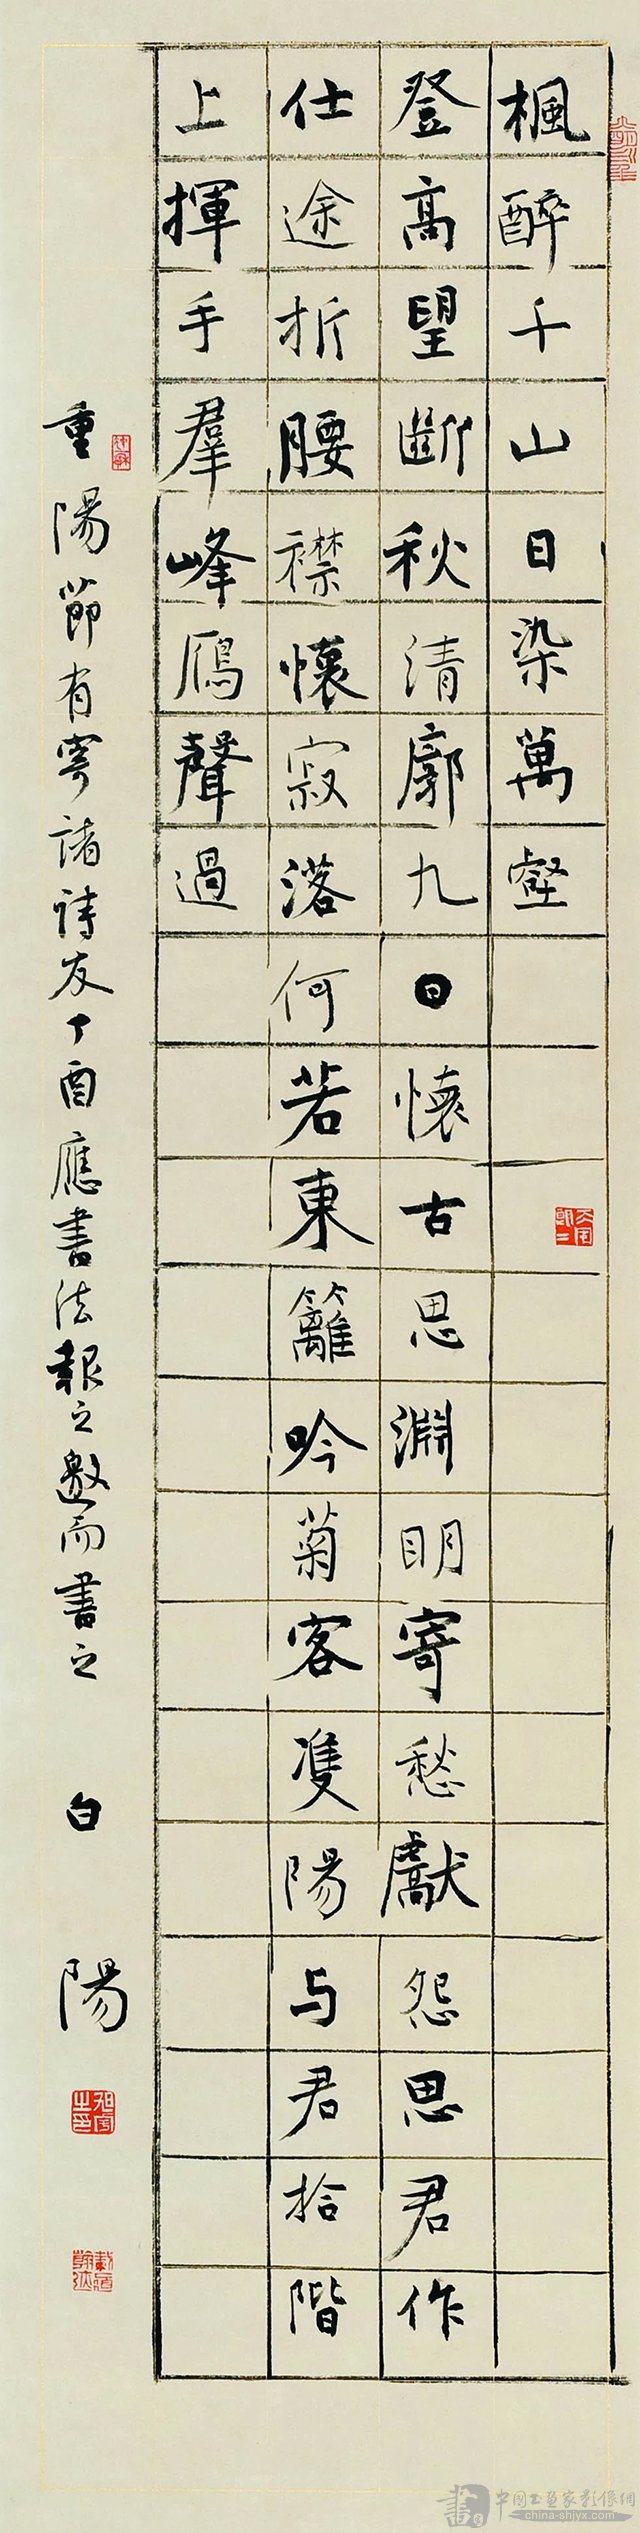 楓醉千山日染萬壑
登高望斷秋清廓九日懷古思淵明寄愁獻怨思君作
仕途折腰襟懷寂落何若東籬吟菊客雙陽与君拾階
上揮手羣峰鴈聲過
重陽節有寄諸詩友丁酉應書法報之邀而書之 白陽
中國书画家影像網
china-shjyx.com